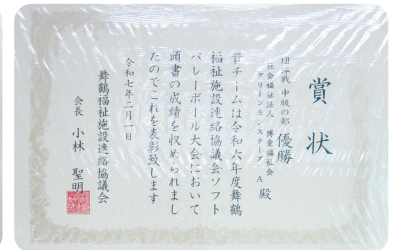 賞状
団体戦 中級の部 優勝
社会福祉法人 博愛福祉会
グリーンモンスターズ A 殿
貴チームは令和六年度舞鶴
福祉施設連絡協議会ソフト
バレーボール大会において
頭書の成績を収められまし
たのでこれを表彰致します
令和七年二月一日
舞鶴福祉施設連絡協議会
会長 小林 聖明